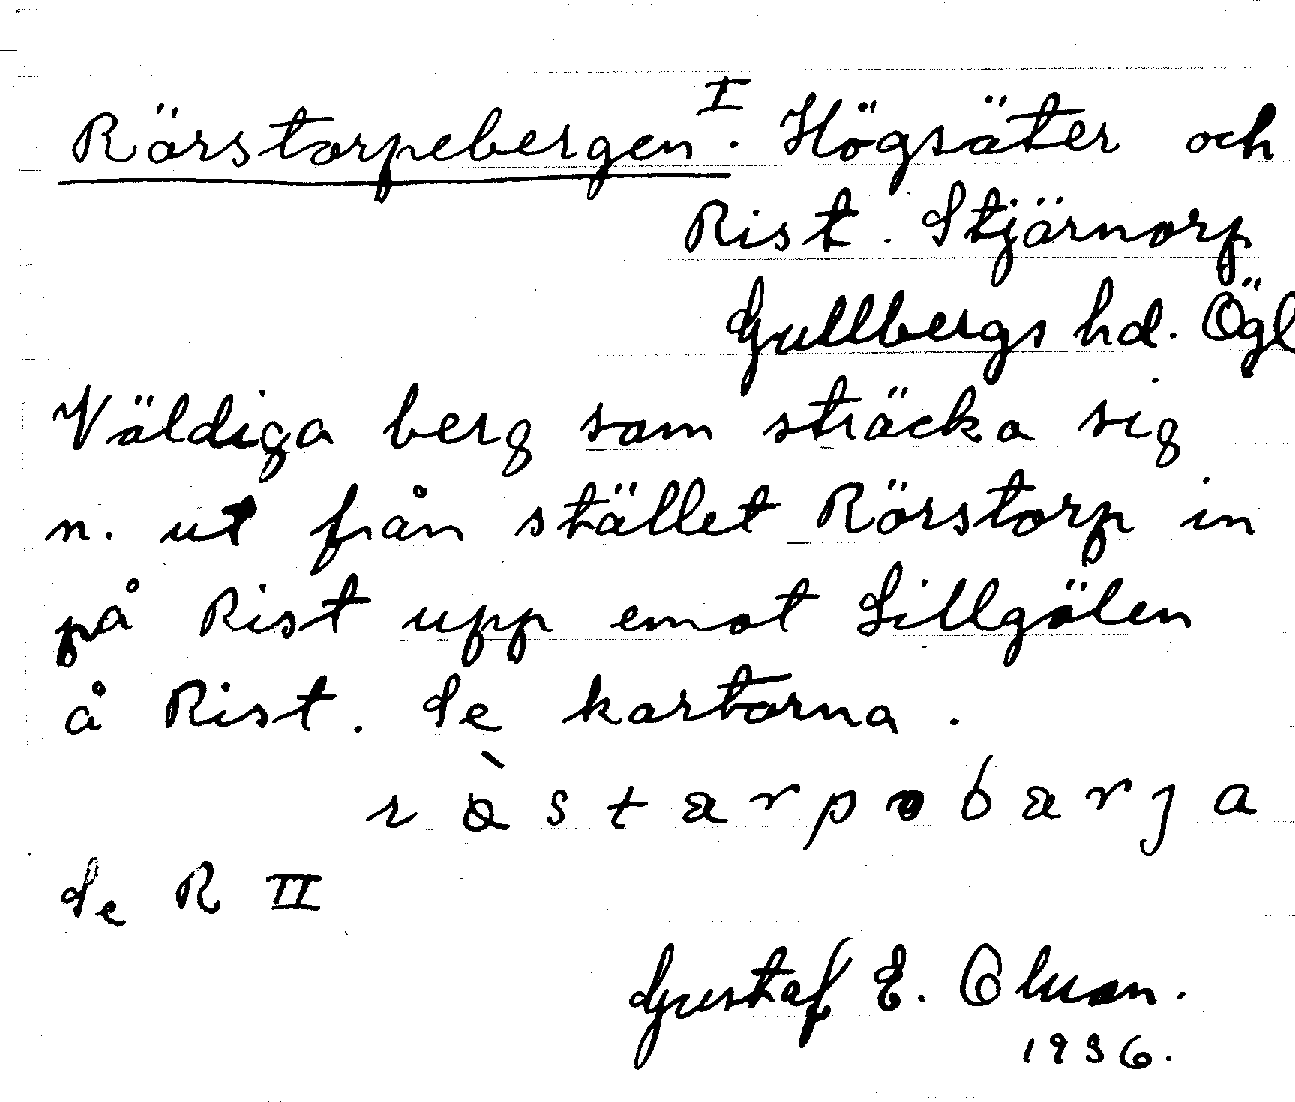 Rörstorpebergen I. Högsäter och
Rist. Stjärnorp
Gullbergs hd. Ögl
Väldiga berg som sträcka sig
n. ut från stället Rörstorp in
på Rist upp emot Lillgölen
å Rist. Se kartorna.
Se R II
Gustaf E. Olsson.
1936.